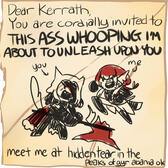 Dear Kerrath,
You are cordially invited to
THIS ASS WHOOPING I'M
ABOUT TO UNLEASH UPON YOU
you
me
meet me at hidden tear in the
peaks of our